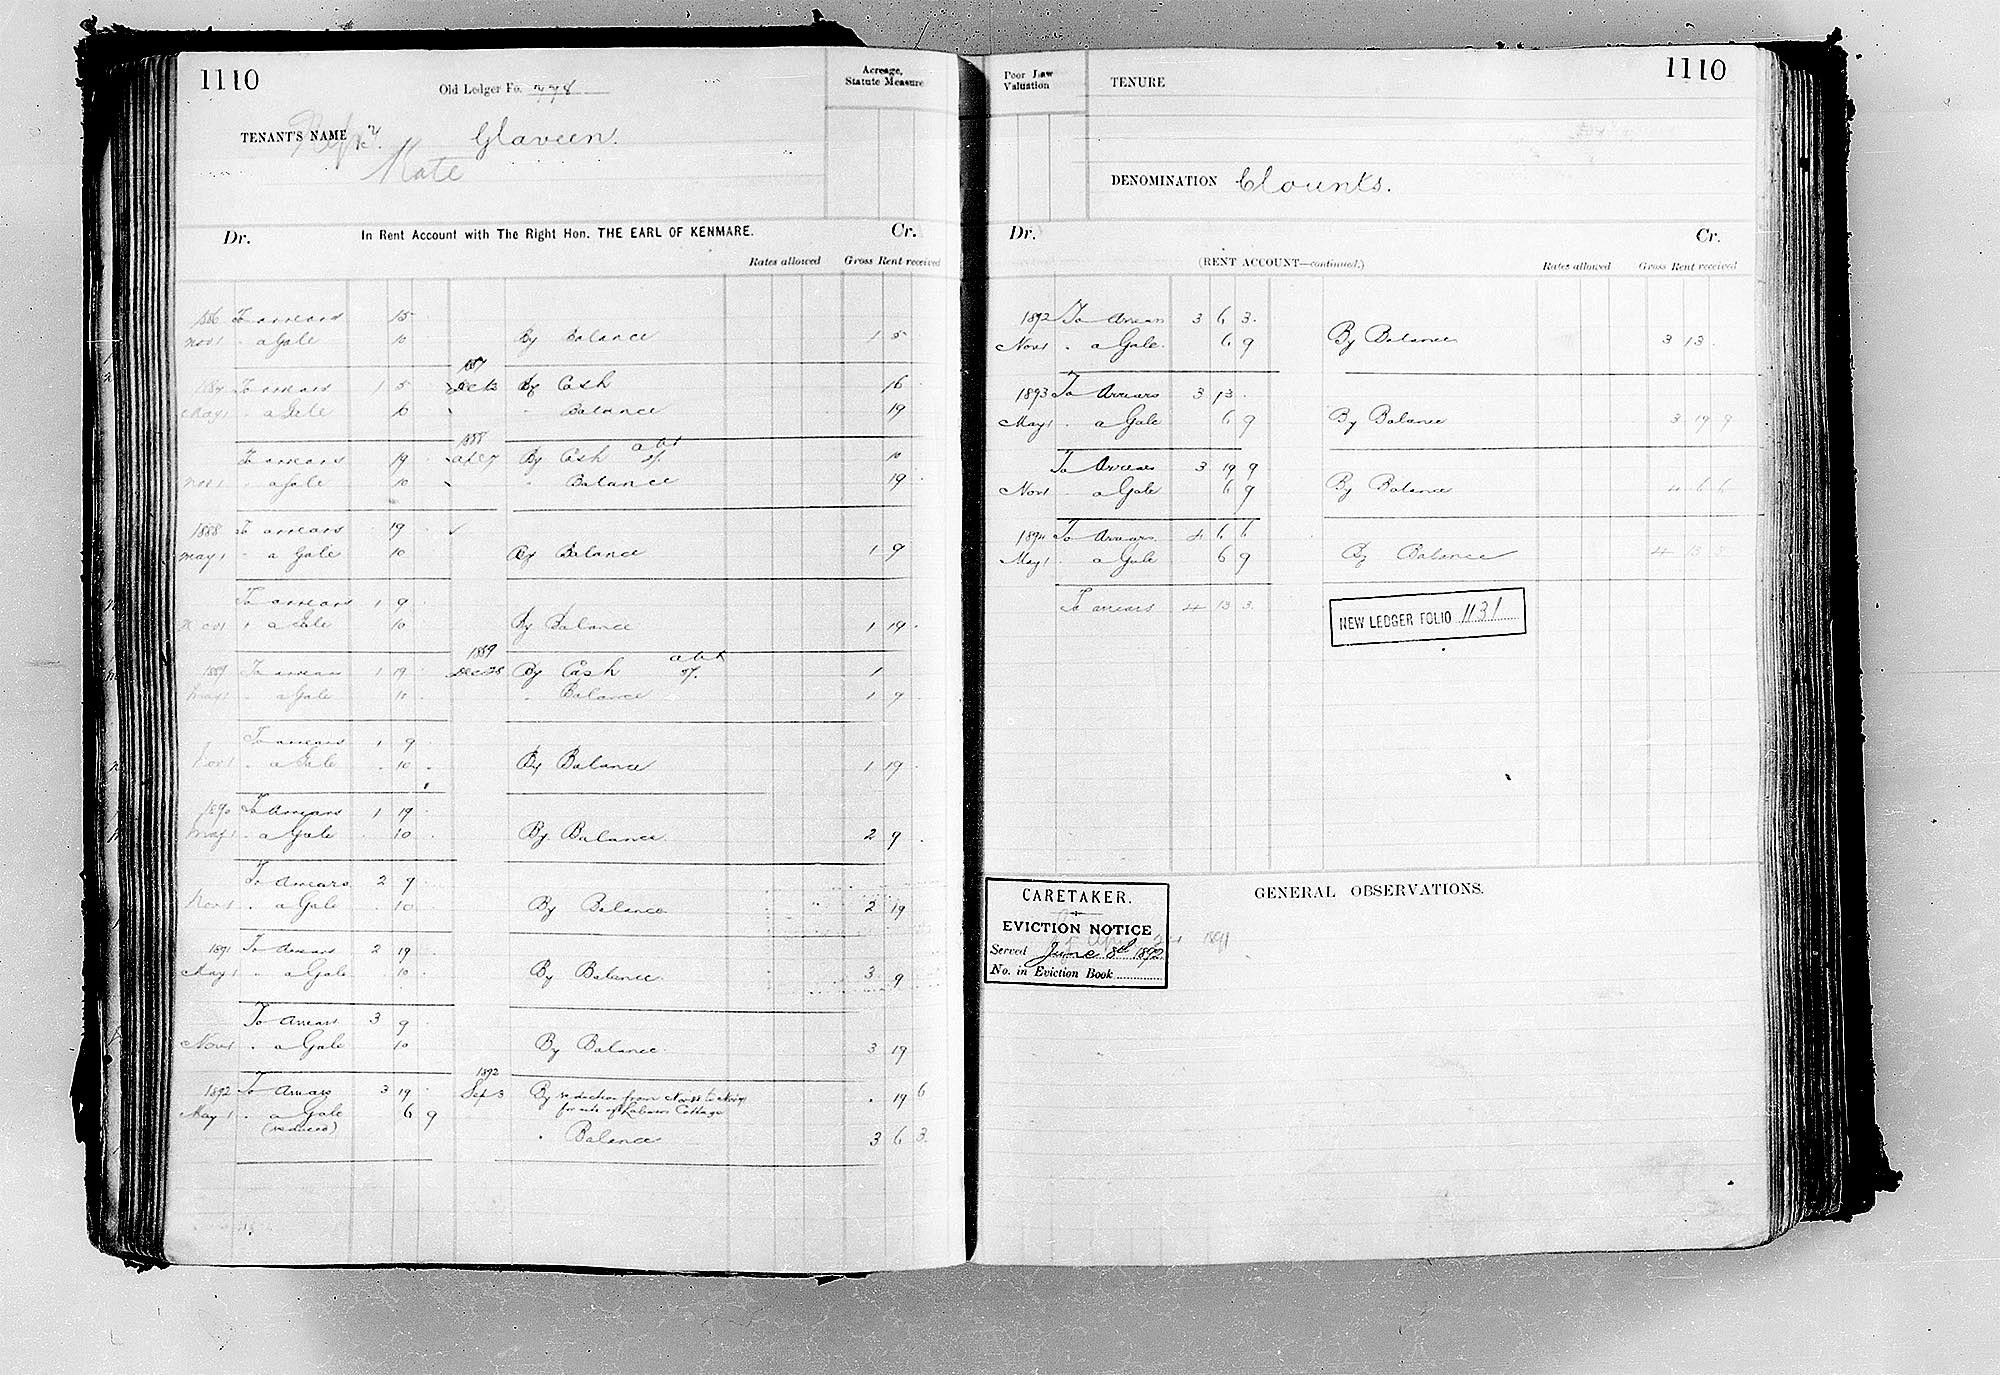 1110
Old Ledger Fo. 778
Acreage,
Statute Measure
TENANT'S NAME Glaveen.
Kate
Dr. In Rent Account with The Right Hon. THE EARL OF KENMARE. Cr.
Rates allowed Gross Rent received
1886 To arrears 15
Nov 1 " a Gale 10 By Balance 1 5
1887
1887 To arrears 1 5 Dec 12 By Cash 16
May 1 " a Gale 10 " Balance 19
1888
To arrears 19 Apl 27 By Cash a/c of 10
Nov 1 " a Gale 10 " Balance 19
1888 To arrears 19
May 1 " a Gale 10 By Balance 1 9
To arrears 1 9
Nov 1 " a Gale 10 By Balance 1 19
1889
1889 To arrears 1 19 Dec 28 By Cash of 1
May 1 " a Gale 10 " Balance 1 9
To arrears 1 9
Nov 1 " a Gale 10 By Balance 1 19
1890 To Arrears 1 19
May 1 " a Gale 10 By Balance 2 9
To Arrears 2 9
Nov 1 " a Gale 10 By Balance 2 19
1891 To Arrears 2 19
May 1 " a Gale 10 By Balance 3 9
To Arrears 3 9
Nov 1 " a Gale 10 By Balance 3 19
1892
1892 To Arrears 3 19 Sep 3 By reduction from Nov to Nov 19 6
May 1 " a Gale 6 9 for site of Labourers Cottage
(reduced)
" Balance 3 6 3
1110
Poor Law
Valuation
TENURE
DENOMINATION Clounts.
Dr. Cr.
(RENT ACCOUNT—continued.)
Rates allowed Gross Rent received
1892 To Arrears 3 6 3
Nov 1 " a Gale 6 9 By Balance 3 13
1893 To Arrears 3 13
May 1 " a Gale 6 9 By Balance 3 19 9
To Arrears 3 19 9
Nov 1 " a Gale 6 9 By Balance 4 6 6
1894 To Arrears 4 6 6
May 1 " a Gale 6 9 By Balance 4 13 3
To arrears 4 13 3
NEW LEDGER FOLIO 1131
GENERAL OBSERVATIONS.
CARETAKER.
EVICTION NOTICE
Served June 8th 1892
No. in Eviction Book
1891